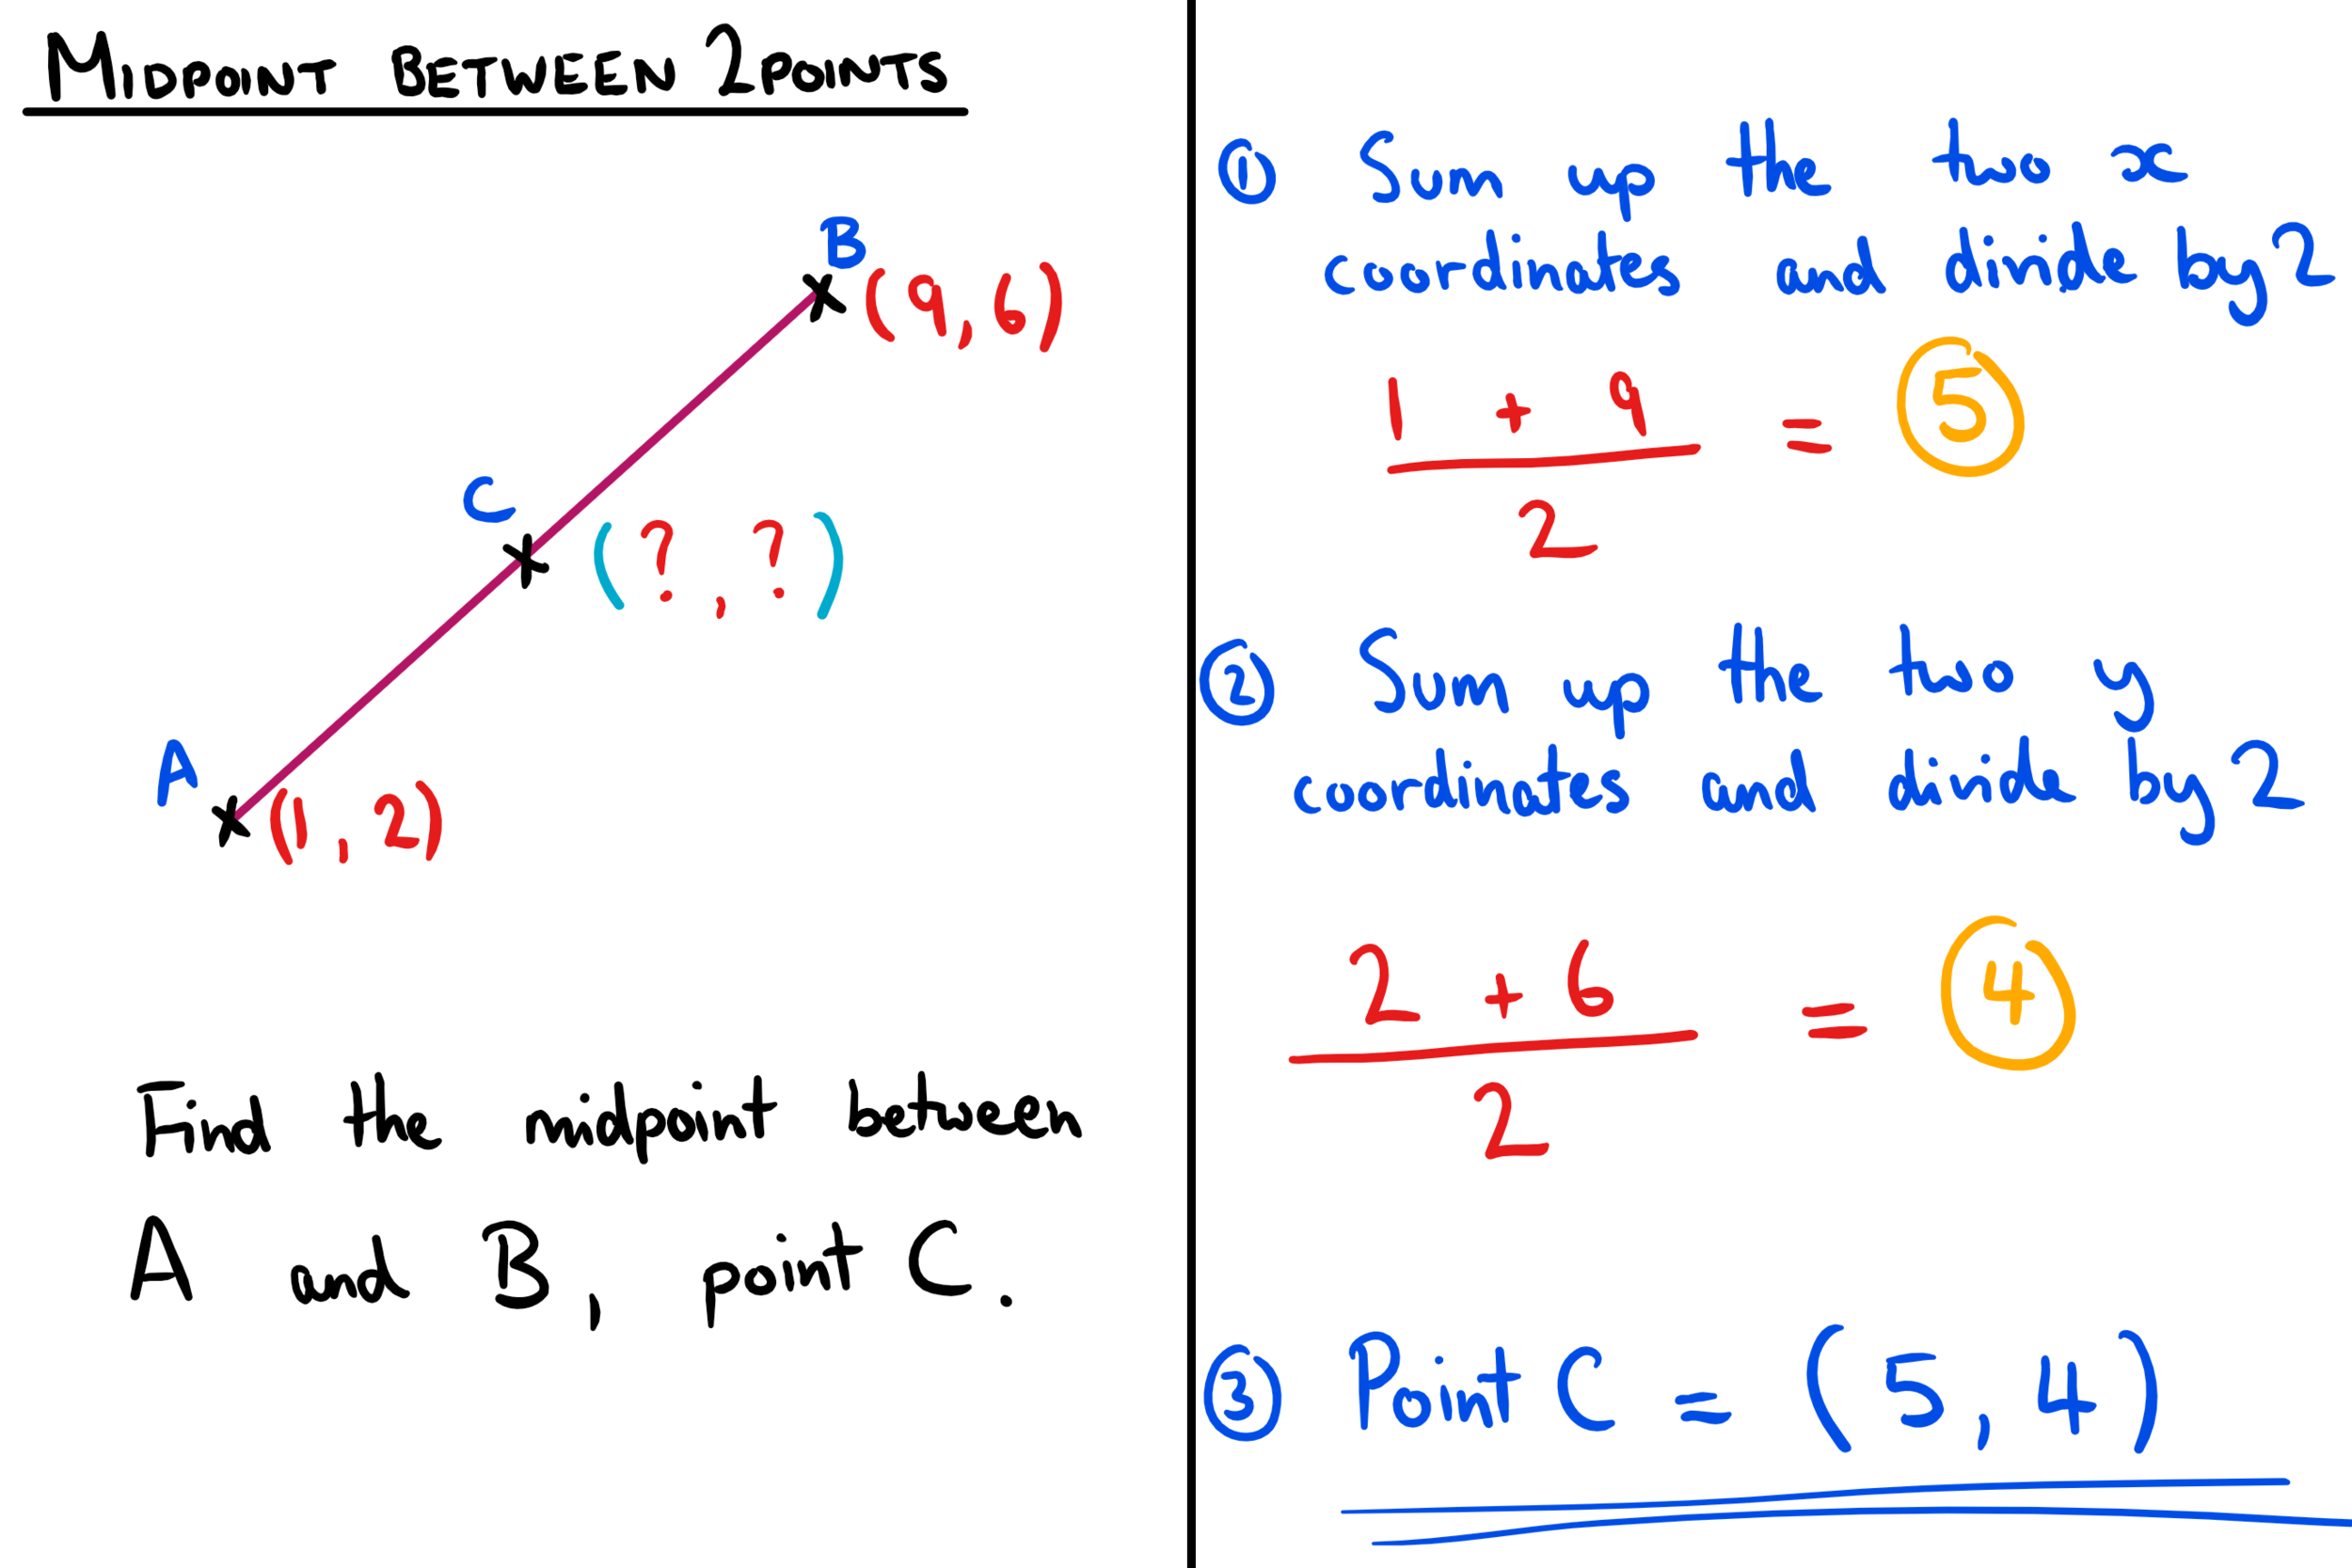 MIDPOINT BETWEEN 2 POINTS
B
(9,6)
C
(?,?)
A
(1,2)
Find the midpoint between
A and B, point C.
① Sum up the two x
coordinates and divide by 2
1 + 9
= 5
2
② Sum up the two y
coordinates and divide by 2
2 + 6
= 4
2
③ Point C = (5,4)